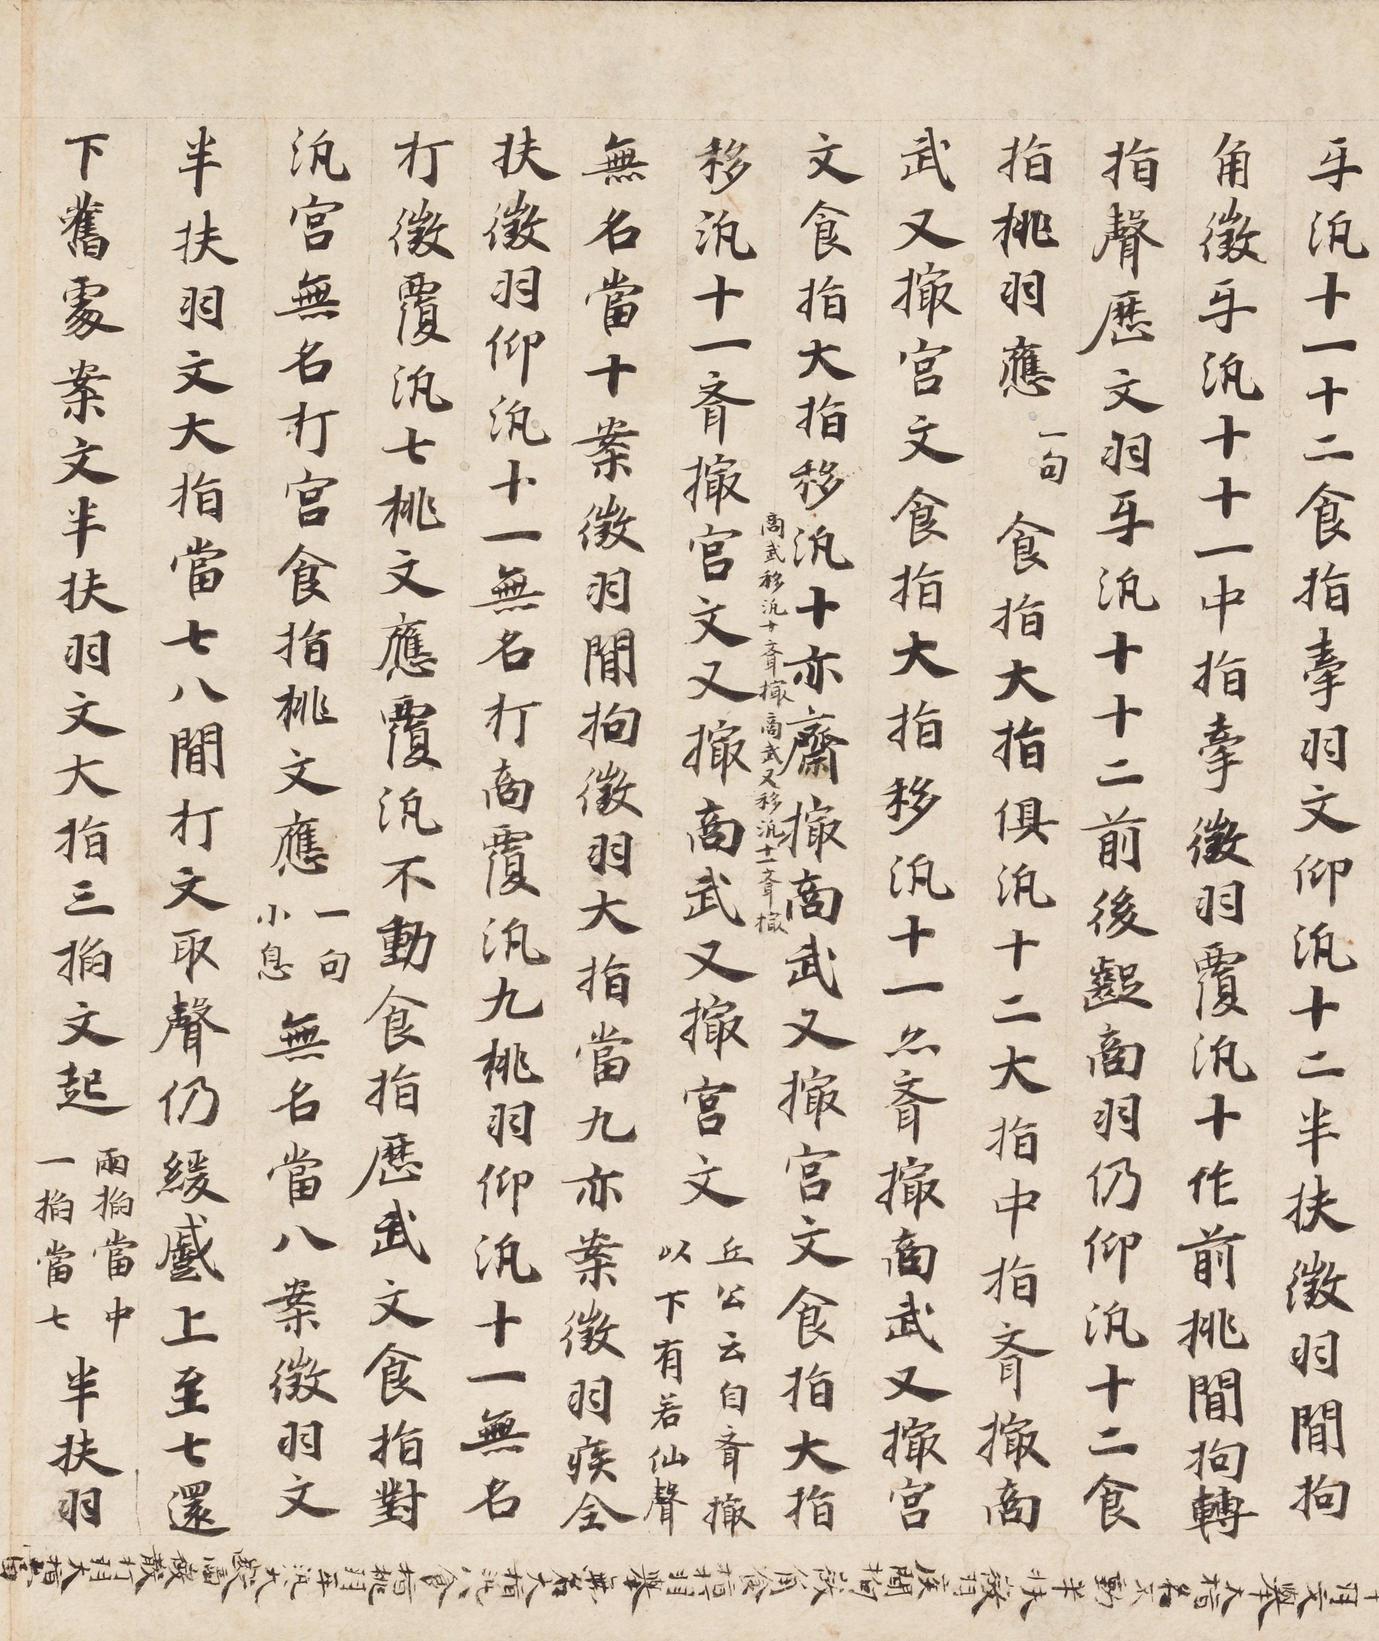 牙汎十一十二食指牽羽文仰汎十二半扶徵羽間拘
角徵牙汎十十一中指牽徵羽覆汎十作前挑間拘轉
指聲歷文羽牙汎十十二前後齪商羽仍仰汎十二食
指挑羽應一句食指大指俱汎十二大指中指齊撮商
武又撮宮文食指大指移汎十一亦齊撮商武又撮宮
文食指大指移汎十亦齊撮商武又撮宮文食指大指
商武移汎十齊撮商武又移汎十一齊撮
移汎十一齊撮宮文又撮商武又撮宮文
丘公云自齊撮
以下有若仙聲
無名當十案徵羽間拘徵羽大指當九亦案徵羽疾全
扶徵羽仰汎十一無名打商覆汎九挑羽仰汎十一無名
打徵覆汎七挑文應覆汎不動食指歷武文食指對
汎宮無名打宮食指挑文應
一句
小息
無名當八案徵羽文
半扶羽文大指當七八間打文取聲仍緩蹙上至七還
下舊處案文半扶羽文大指三掐文起
兩掐當中
一掐當七
半扶羽